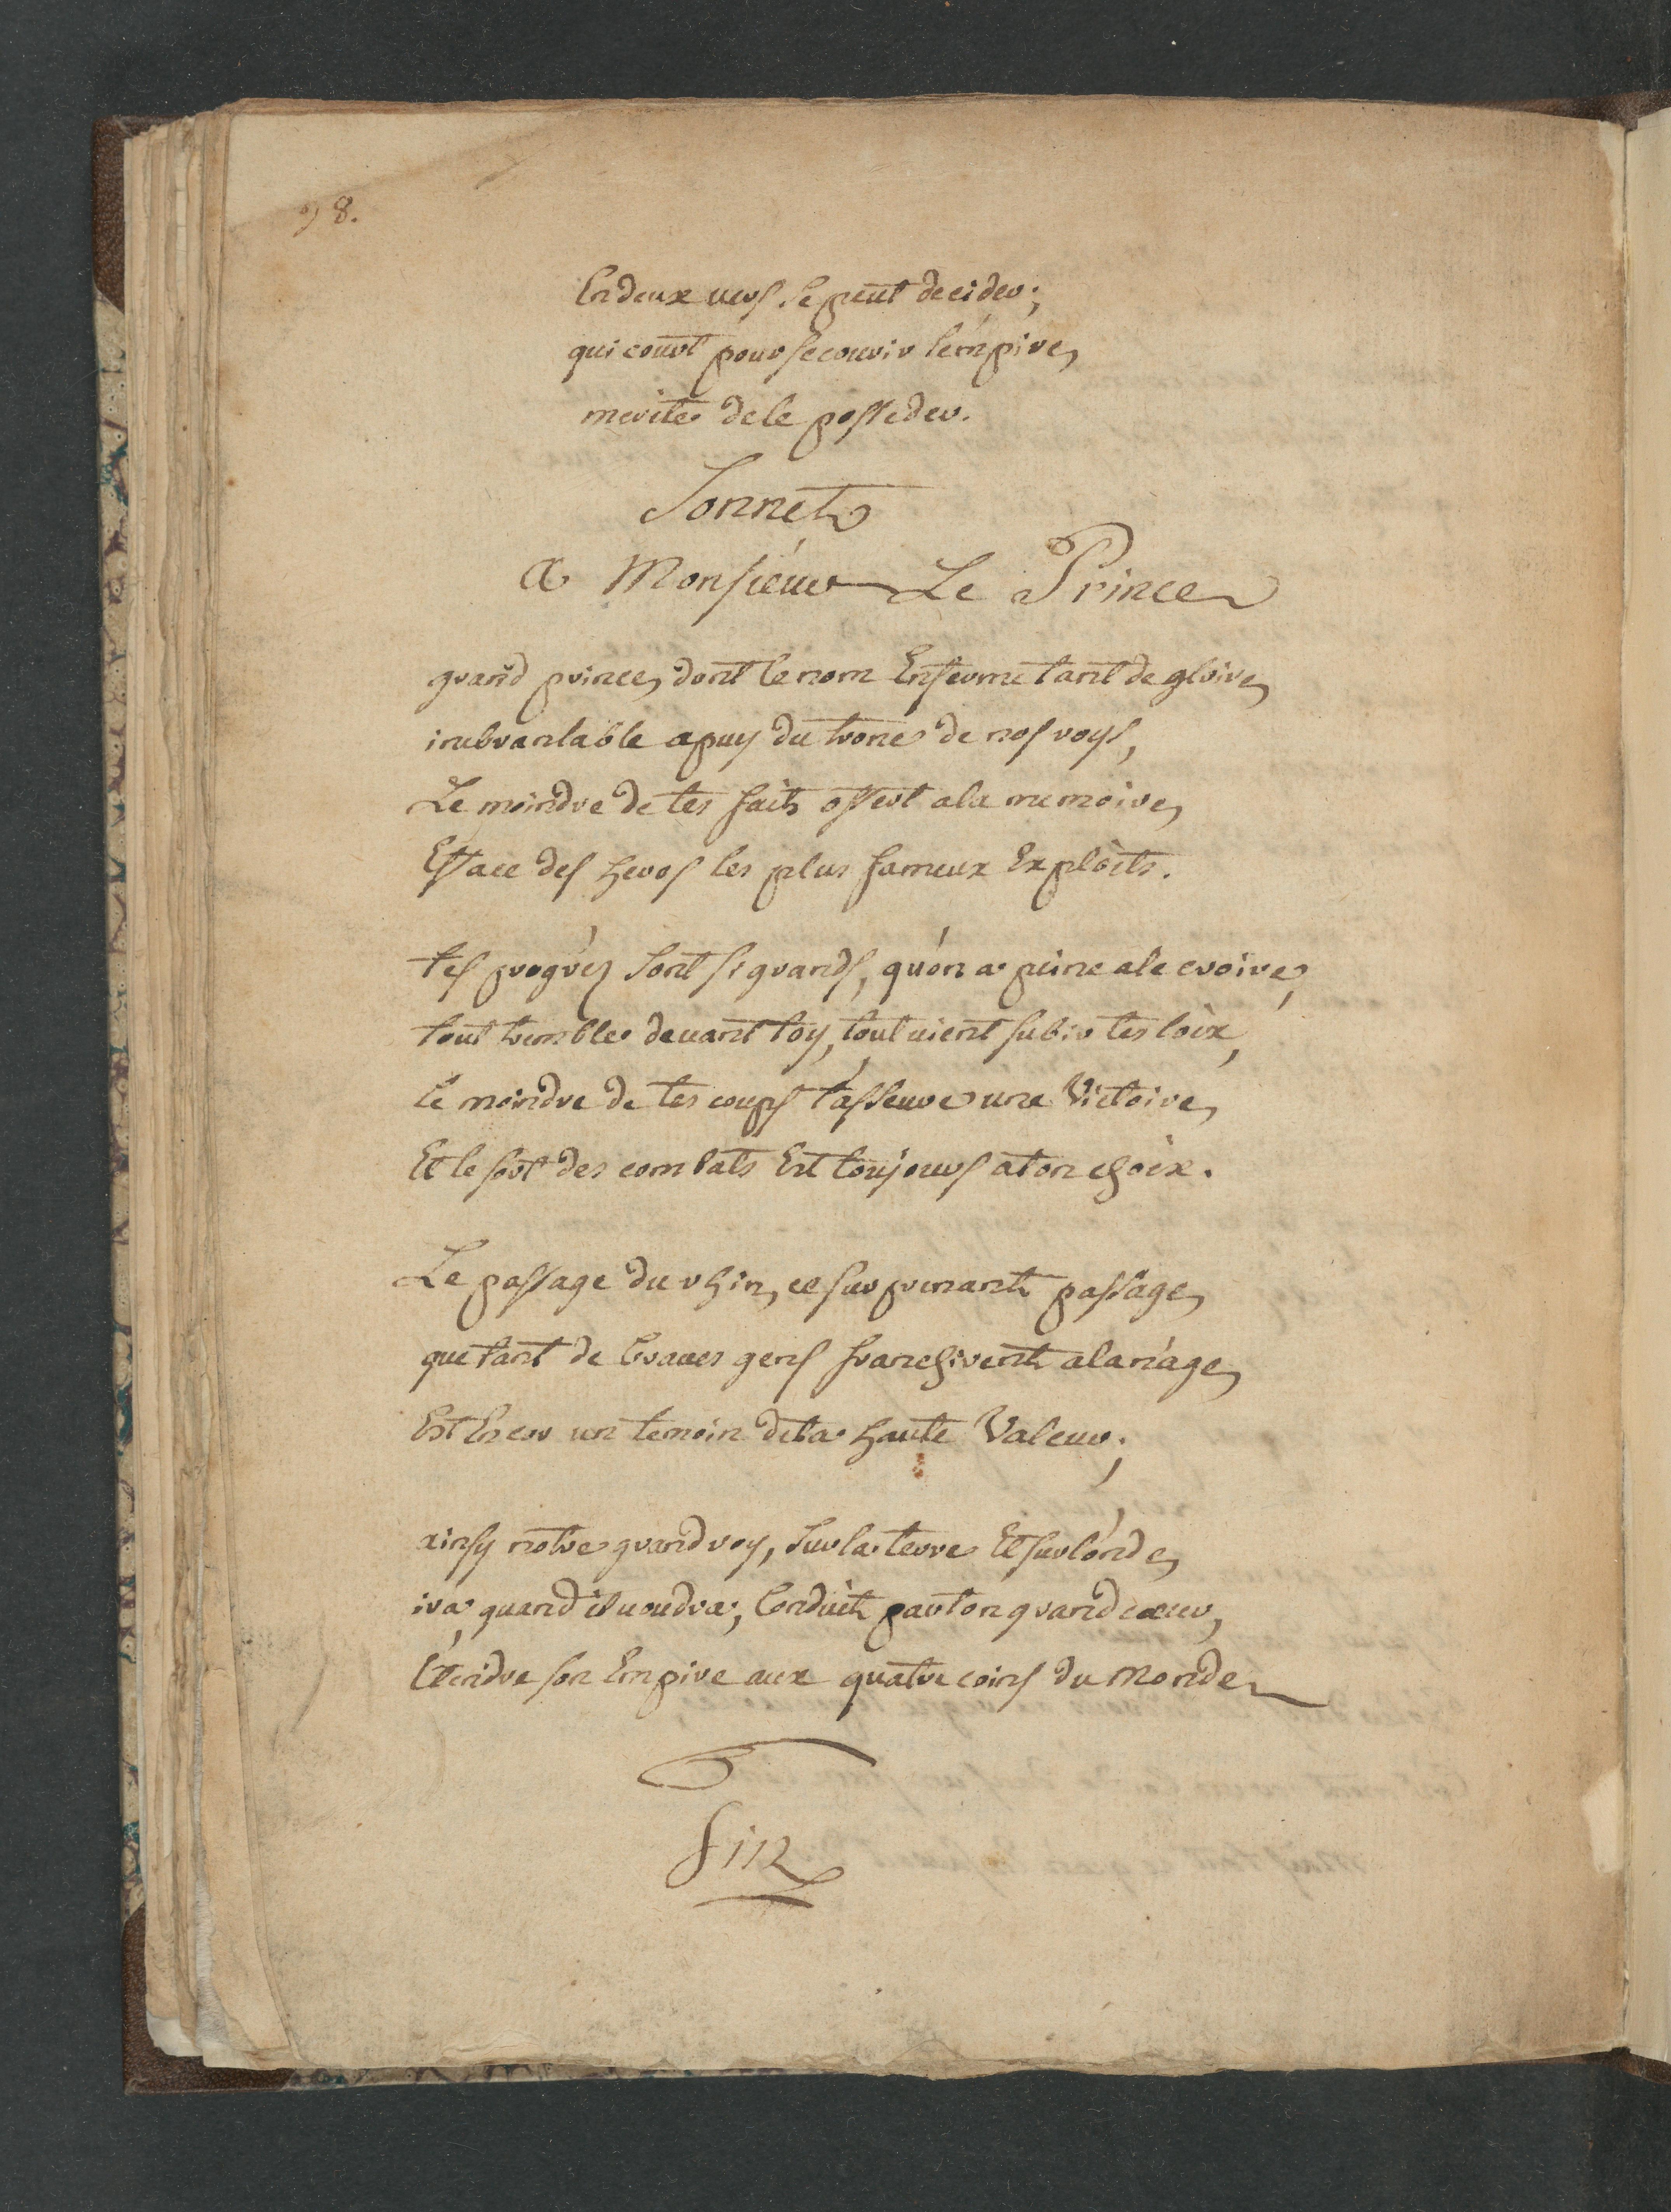 98.
En deux vers se peut decider;
qui court pour secourir l'empire,
merite de le posseder.
Sonnet
a Monsieur Le Prince
grand prince, dont le nom Enferme tant de gloire,
inebranlable apuy du trone de nos roys,
Le moindre de tes faits offert a la memoire,
Efface des heros les plus fameux Exploits.
tes progrez sont si grands, qu'on a peine a le croire,
tout tremble devant toy, tout vient subir tes loix,
le moindre de tes coups t'asseure une Victoire,
Et le sort des combats Est toujours a ton choix.
Le passage du rhin, ce surprenant passage,
que tant de braves gens franchirent a la nage,
Est Encor un temoin de ta haute Valeur;
ainsy notre grand roy, sur la terre Et sur l'onde,
ira, quand il voudra, Conduit par ton grand cœur,
Etendre son Empire aux quatre coins du Monde
fin